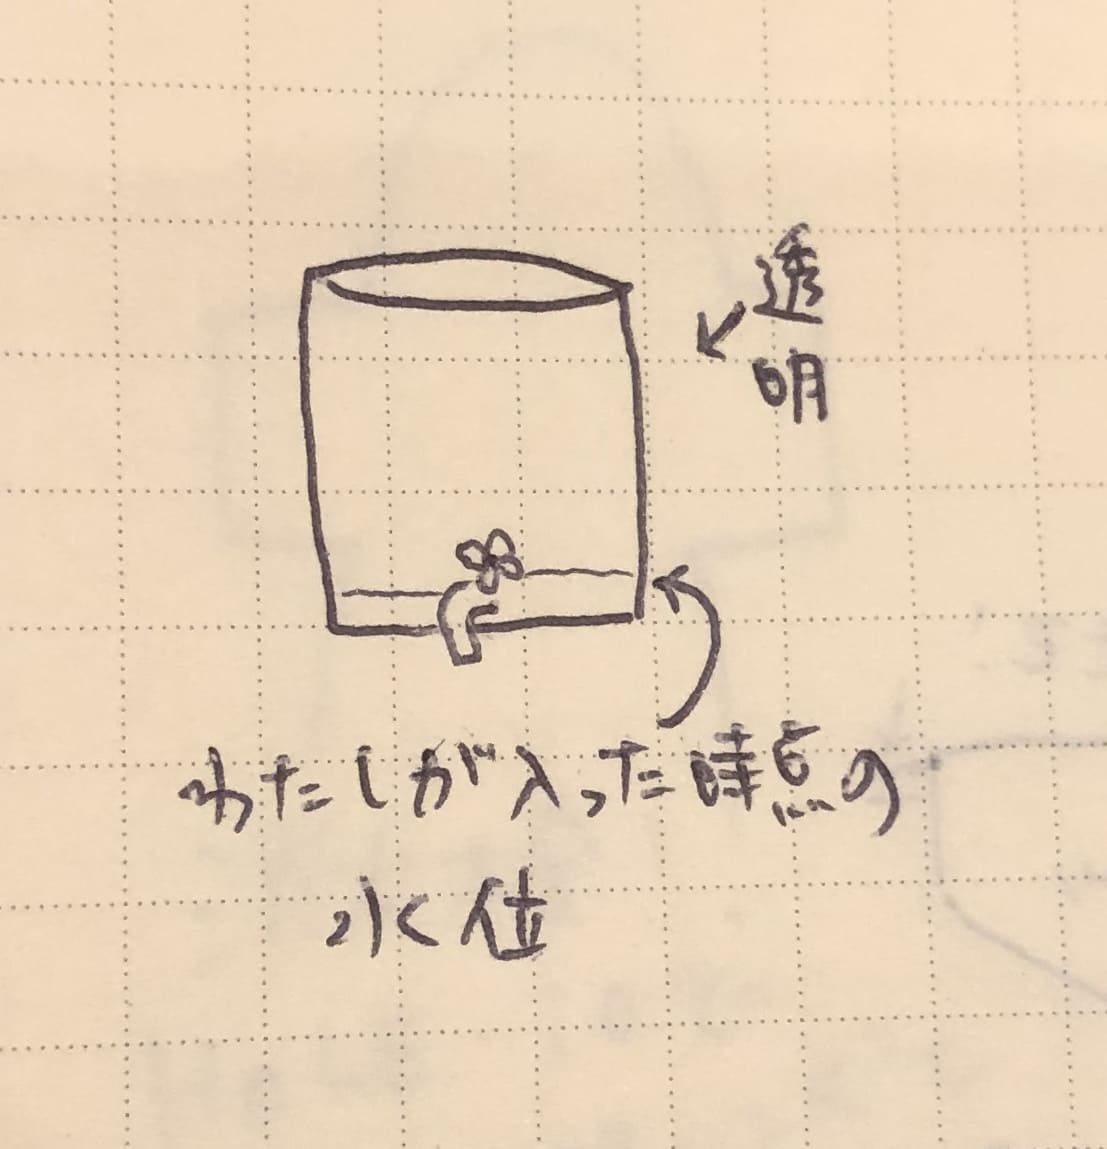 透明
わたしが入った時点の
水位